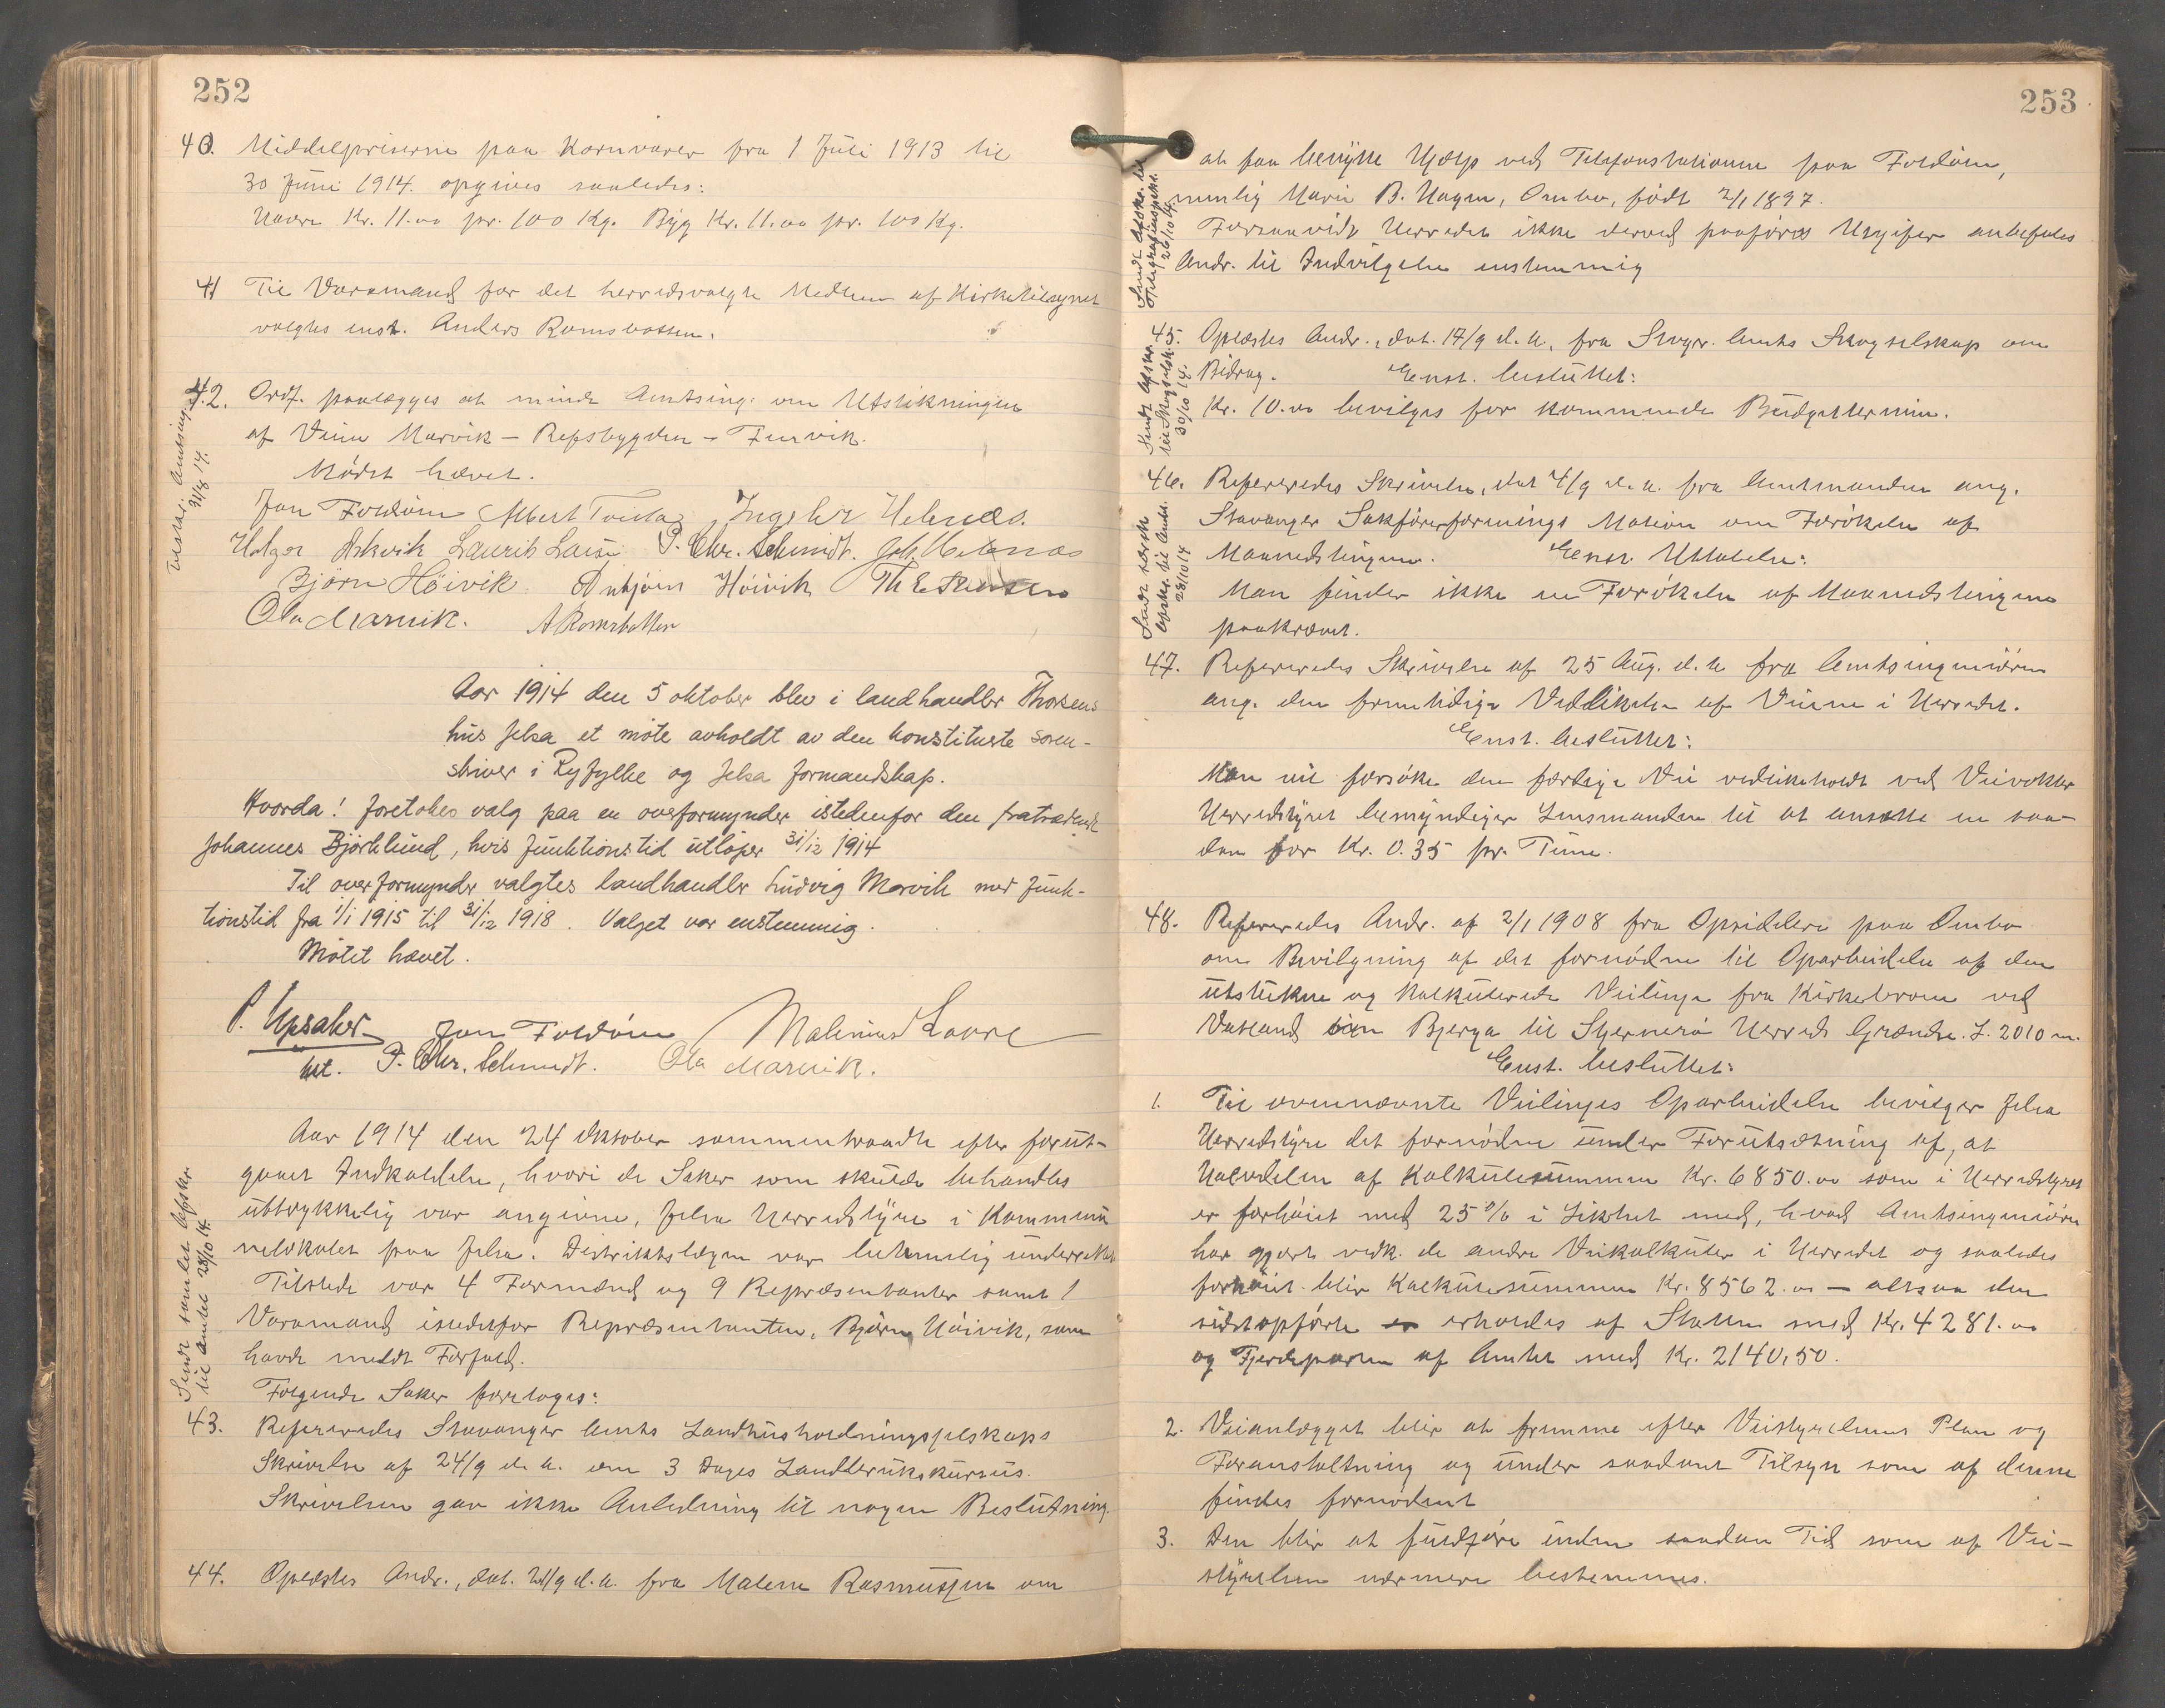 252
40. Middelpriserne paa Kornvarer fra 1 Juli 1913 til
30 Juni 1914. opgives saaledes:
Havre Kr. 11.00 pr. 100 Kg. Byg Kr. 11.00 pr. 100 Kg.
41 Til Varamand for det herredsvalgte Medlem af Kirketilsynet
valgtes enst. Anders Ramsbotten.
42. Ordf. paalægges at minde Amtsing. om Utstikningen
af Veien Marvik - Repsbygden - Furvik.
Mødet hævet.
Jon Foldøen Albert Tveita Ingebr Helnæs.
Holger Askvik Laurits P. Chr. Schmidt. Joh. Helenæs
Bjørn Høivik Anbjørn Høivik Th E
Ola Marvik. A Ramsbotten
Tilskr. Amtsing.
31/8 14.
Aar 1914 den 5 oktober blev i landhandler Thorsens
hus Jelsa et møte avholdt av den konstituerte soren-
skriver i Ryfylke og Jelsa formandskap.
Hvorda! foretokes valg paa en overformynder istedenfor den fratrædende
Johannes Bjørklund, hvis funktionstid utløper 31/12 1914
Til overformynder valgtes landhandler Ludvig Marvik med funk-
tionstid fra 1/1 1915 til 31/12 1918. Valget var enstemmig.
Møtet hævet.
P. Upsaker Jon Foldøen Malenius Lavre
kst. P. Chr. Schmidt. Ola Marvik.
Aar 1914 den 24 Oktober sammentraadte efter forut-
gaaet Indkaldelse, hvori de Saker som skulde behandles
uttrykkelig var angivne, Jelsa Herredstyre i Kommu-
nelokalet paa Jelsa. Distriktslægen var betimelig underrettet
Tilstede var 4 Formænd og 9 Repræsentanter samt 1
Varamand istedetfor Repræsentanten, Bjørn Høivik, som
havde meldt Forfald.
Følgende Saker foretoges:
Sendt samlet Afskr.
til amtet 28/10 14.
43. Refereredes Stavanger Amts Landhusholdningsselskaps
Skrivelse af 24/9 d.a. om 3 Dages Landbrukskursus.
Skrivelsen gav ikke Anledning til nogen Beslutning.
44. Oplæstes Andr., dat. 21/9 d.a. fra Malene Rasmussen om
253
at faa benytte Hjælp ved Telefonstationen paa Foldøen,
nemlig Marie B. Hagen, Ombo, født 2/1 1897.
Forsaavidt Herredet ikke derved paaføres Utgifter anbefales
Andr. til Indvilgelse enstemmig
Sendt Afskr. til
Telegrafinspekt.
26/10 14.
45. Oplæstes Andr., dat. 17/9 d.a. fra Stvgr. Amts Skogselskap om
Bidrag. Enst. besluttet:
Kr. 10.00 bevilges for kommende Budgettermin.
Sendt Afskr.
til Skogselsk.
30/10 14.
46. Refereredes Skrivelse, dat 4/9 d.a. fra Amtmanden ang.
Stavanger Sakførerforenings Motion om Forøkelse af
Maanedstingene. Enst. Uttalelse:
Man finder ikke en Forøkelse af Maanedstingene
paakrævet.
Sendt særsk.
Afskr. til Amtet.
28/10 14
47. Refereredes Skrivelse af 25 Aug. d.a. fra Amtsingeniøren
ang. den fremtidige Vedlikehold af Veiene i Herredet.
Enst. besluttet:
Man vil forsøke den færdige Vei vedlikeholdt ved Veivokter
Herredstyret bemyndiger Lensmanden til at ansætte en saa-
dan for Kr. 0.35 pr. Time.
48. Refereredes Andr. af 2/1 1908 fra Opsiddere paa Ombo
om Bevilgning af det fornødne til Oparbeidelse af den
utstukne og kalkulerede Veilinje fra Kirkebroen ved
Vatland Bjerga til Sjernerø Herreds Grændse. L. 2010 m.
Enst. besluttet:
1. Til ovennævnte Veilinjes Oparbeidelse bevilger Jelsa
Herredstyre det fornødne under Forutsætning af, at
Halvdelen af Kalkulesummen Kr. 6850.00 som i Herredstyret
er forhøiet med 25% i Likhet med, hvad Amtsingeniøren
har gjort vedk. de andre Veikalkuler i Herredet og saaledes
forhøiet blir Kalkulesummen Kr. 8562.00 — altsaa den
sidstopførte erholdes af Staten med Kr. 4281.00
og Fjerdeparten af Amtet med Kr. 2140,50.
2. Veianlægget blir at fremme efter Veistyrelsens Plan og
Foranstaltning og under saadant Tilsyn som af denne
findes fornødent
3. Den blir at fuldføre inden saadan Tid som af Vei-
styrelsen nærmere bestemmes.